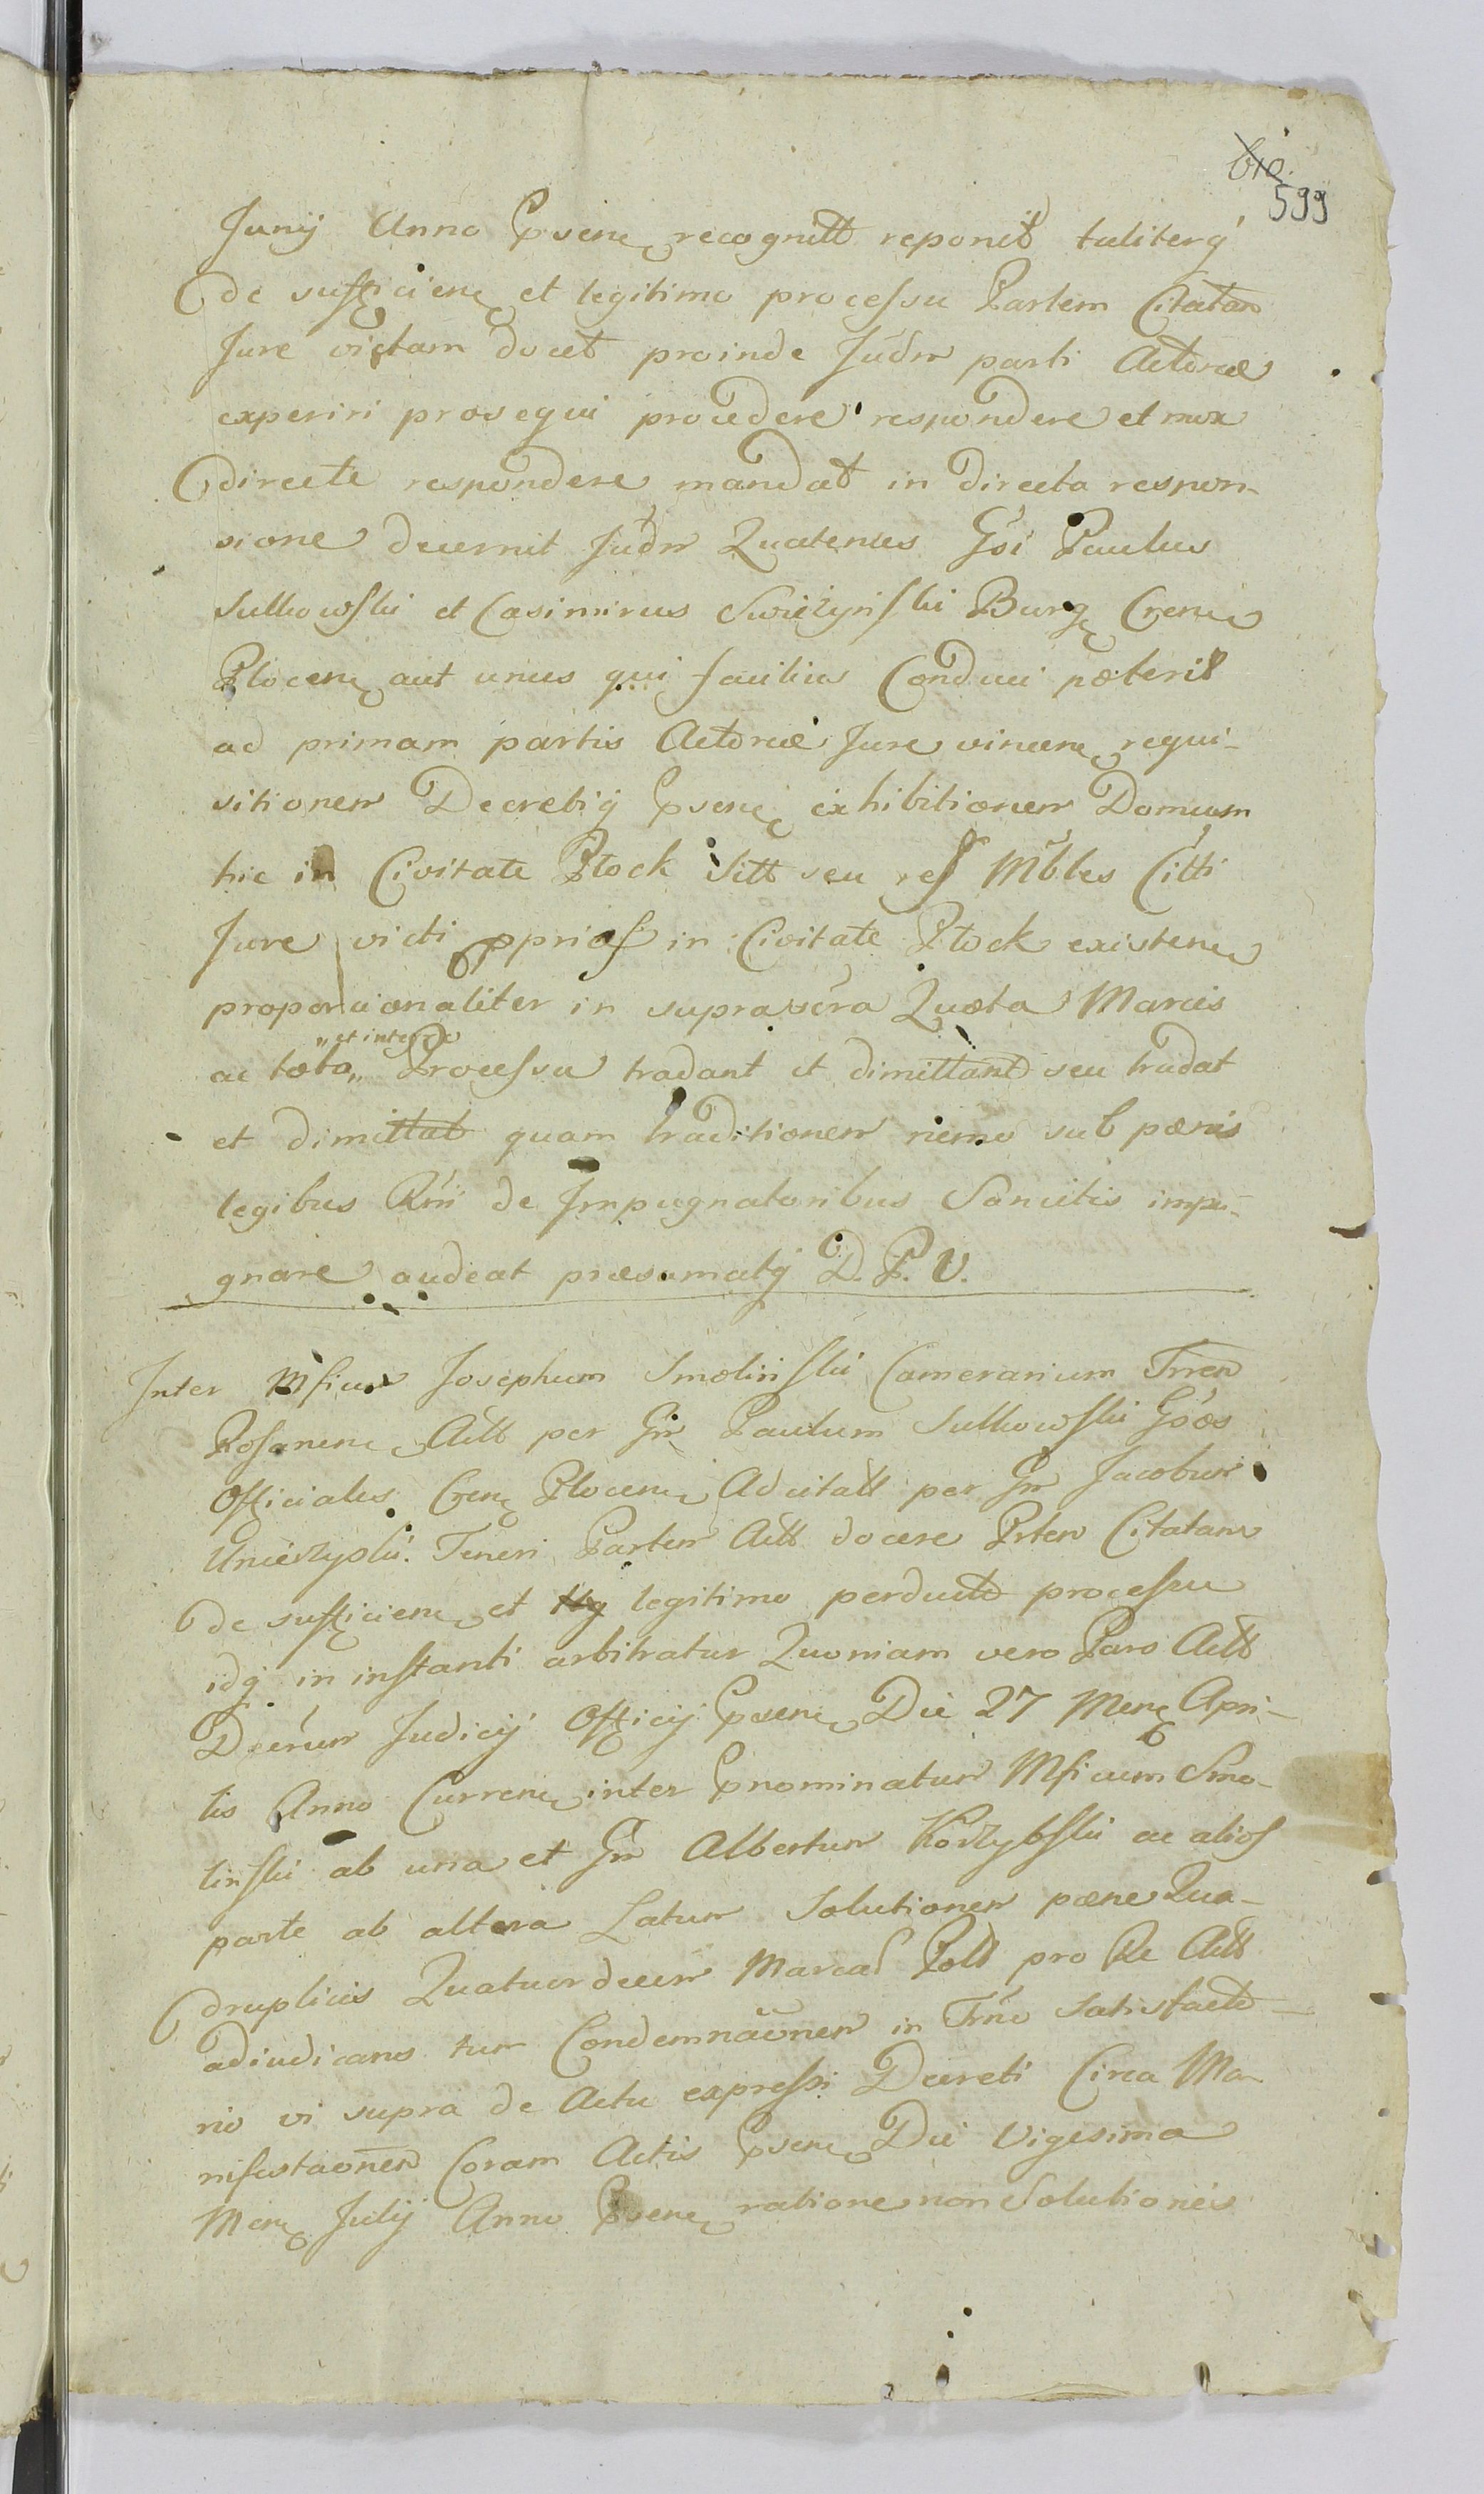 610.
599
Junij Anno Psenc recognitt reponit taliterq
de sufficienc et legitimo processu Partem Citatam
Jure victam docet proinde Judm parti Actoreae
experiri prosequi procedere respondere et mox
directe respondere mandat in directa respon-
sione decernit Judm Quatenus Gsi Paulus
Sulkowski et Casimirus Swiezynski Burg Crenc
Plocenc aut unus qui facilius Conduci poterit
ad primam partis Actoreae Jure vincenc requi-
sitionem Decretiq Psenc exhibitionem Domum
hic in Civitate Płock Sitt seu res Mbles Citti
Jure victi pprias in Civitate Płock existenc
proporcionaliter in suprascra Quota Marcis
ac tota „et integro„ Processu tradant et dimittant seu tradat
et dimittat quam traditionem nemo sub poenis
legibus Rni de Impugnatoribus Sancitis impu-
gnare audeat praesumatq D. P. V.
Inter Mficum Josephum Smolinski Camerarium Trren
Rosanenc Actt per Gm Paulum Sulkowski Gsos
Officiales Crenc Plocenc Adcitatt per Gm Jacobum
Unierzyski. Teneri Partem Actt docere Prtem Citatam
de sufficienc et legitimo perducto processu
idq in instanti arbitratur Quoniam vero Pars Actt
Decrum Judicij Officij Psenc Die 27 Menc Apri-
lis Anno Currenc inter Pnominatum Mficum Smo-
linski ab una et Gm Albertum Korzybski ac alios
parte ab altera Latum Solutionem poenae Qua-
druplicis Quatuordecem Marcas Poll pro Re Actt
adiudicans tum Condemnaonem in Trno Satisfacto-
rio vi supra de Actu expressi Decreti Circa Ma-
nifestaonem Coram Actis Psenc Die Vigesima
Menc Julij Anno Psenc ratione non Solutionis